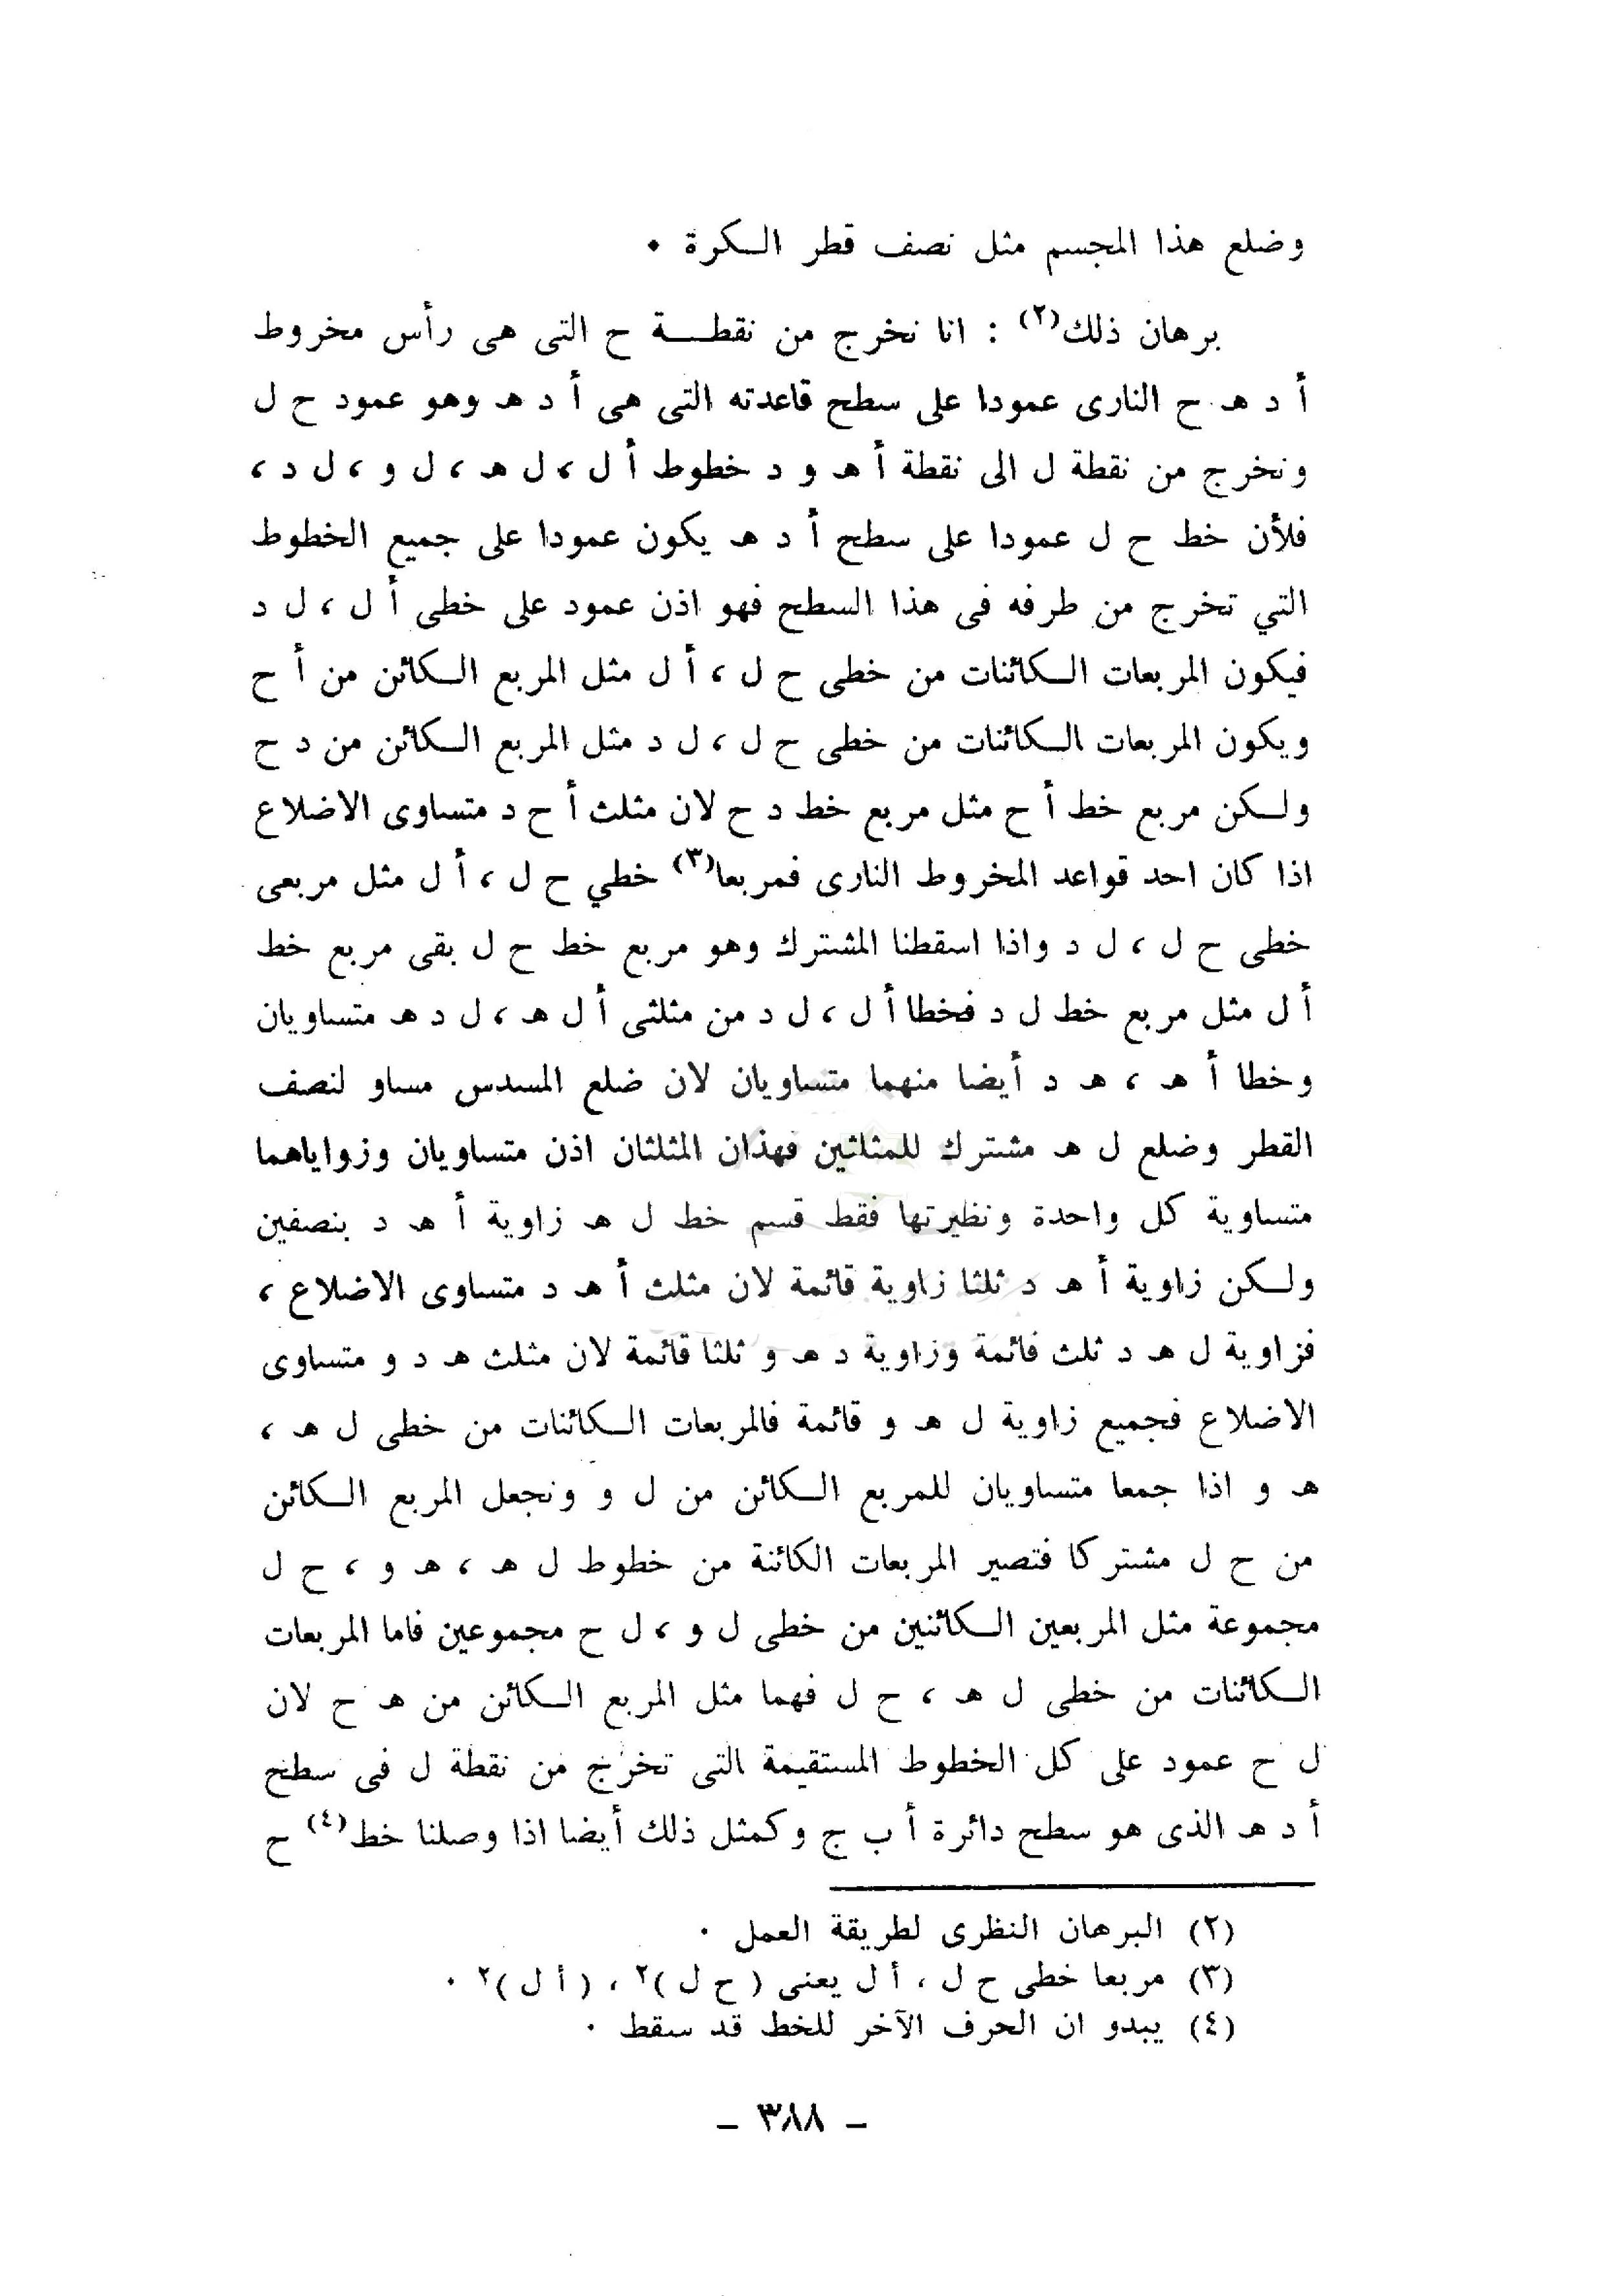 وضلع هذا المجسم مثل نصف قطر الكرة ٠
برهان ذلك(٢) : انا نخرج من نقطة ح التى هى رأس مخروط
أ د هـ ح النارى عمودا على سطح قاعدته التى هى أ د هـ وهو عمود ح ل
ونخرج من نقطة ل الى نقطة أ هـ و د خطوط أ ل ، ل هـ ، ل و ، ل د ،
فلأن خط ح ل عمودا على سطح أ د هـ يكون عمودا على جميع الخطوط
التي تخرج من طرفه فى هذا السطح فهو اذن عمود على خطى أ ل ، ل د
فيكون المربعات الكائنات من خطى ح ل ، أ ل مثل المربع الكائن من أ ح
ويكون المربعات الكائنات من خطى ح ل ، ل د مثل المربع الكائن من د ح
ولكن مربع خط أ ح مثل مربع خط د ح لان مثلث أ ح د متساوى الاضلاع
اذا كان احد قواعد المخروط النارى فمربعا(٣) خطي ح ل ، أ ل مثل مربعى
خطى ح ل ، ل د واذا اسقطنا المشترك وهو مربع خط ح ل بقى مربع خط
أ ل مثل مربع خط ل د فخطا أ ل ، ل د من مثلثى أ ل هـ ، ل د هـ متساويان
وخطا أ هـ ، هـ د أيضا منهما متساويان لان ضلع المسدس مساو لنصف
القطر وضلع ل هـ مشترك للمثلثين فهذان المثلثان اذن متساويان وزواياهما
متساوية كل واحدة ونظيرتها فقط قسم خط ل هـ زاوية أ هـ د بنصفين
ولكن زاوية أ هـ د ثلثا زاوية قائمة لان مثلث أ هـ د متساوى الاضلاع ،
فزاوية ل هـ د ثلث قائمة وزاوية د هـ و ثلثا قائمة لان مثلث هـ د و متساوى
الاضلاع فجميع زاوية ل هـ و قائمة فالمربعات الكائنات من خطى ل هـ ،
هـ و اذا جمعا متساويان للمربع الكائن من ل و ونجعل المربع الكائن
من ح ل مشتركا فتصير المربعات الكائنة من خطوط ل هـ ، هـ و ، ح ل
مجموعة مثل المربعين الكائنين من خطى ل و ، ل ح مجموعين فاما المربعات
الكائنات من خطى ل هـ ، ح ل فهما مثل المربع الكائن من هـ ح لان
ل ح عمود على كل الخطوط المستقيمة التى تخرج من نقطة ل فى سطح
أ د هـ الذى هو سطح دائرة أ ب ج وكمثل ذلك أيضا اذا وصلنا خط(٤) ح
(٢) البرهان النظرى لطريقة العمل ٠
(٣) مربعا خطى ح ل ، أ ل يعنى ( ح ل )٢ ، ( أ ل )٢ ٠
(٤) يبدو ان الحرف الآخر للخط قد سقط ٠
– ٣٨٨ –